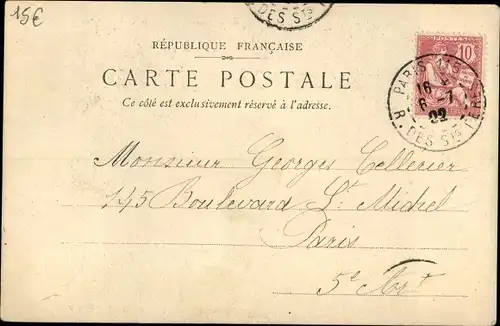 15€
DES Sts
RÉPUBLIQUE FRANÇAISE
CARTE POSTALE
Ce côté est exclusivement réservé à l'adresse.
POSTES
10
PARIS 115
6 - 7
02
R. DES Sts PÈRES
Monsieur Georges Tellerier
145 Boulevard St Michel
Paris
5e Arrt